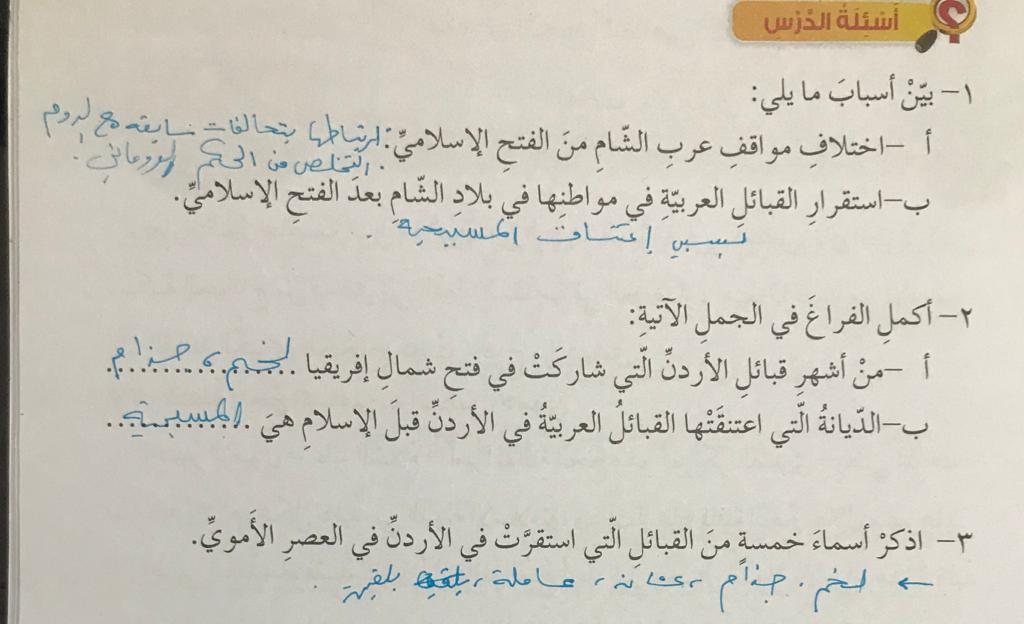 أَسْئِلَةُ الدَّرْسِ
١- بيّنْ أسبابَ ما يلي:
أ -اختلافِ مواقفِ عربِ الشّامِ منَ الفتحِ الإسلاميِّ: لارتباطها بتحالفات سابقه مع الروم
. التخلص من الحكم الروماني.
ب-استقرارِ القبائلِ العربيّةِ في مواطنِها في بلادِ الشّامِ بعدَ الفتحِ الإسلاميِّ.
بسبب إعتناق المسيحية .
٢- أكملِ الفراغَ في الجملِ الآتيةِ:
أ -منْ أشهرِ قبائلِ الأردنِّ الّتي شاركَتْ في فتحِ شمالِ إفريقيا لخم، جذام.
ب-الدّيانةُ الّتي اعتنقَتْها القبائلُ العربيّةُ في الأردنِّ قبلَ الإسلامِ هيَ المسيحية
٣- اذكرْ أسماءَ خمسةٍ منَ القبائلِ الّتي استقرَّتْ في الأردنِّ في العصرِ الأَمويِّ.
← لخم، جذام، عاملة، بلقين